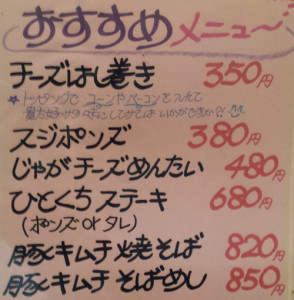 おすすめメニュー
チーズはし巻き 350円
★トッピングでコーンやベーコンを入れて
スジポンズ 380円
じゃがチーズめんたい 480円
ひとくちステーキ 680円
(ポンズ or タレ)
豚キムチ焼そば 820円
豚キムチそばめし 850円